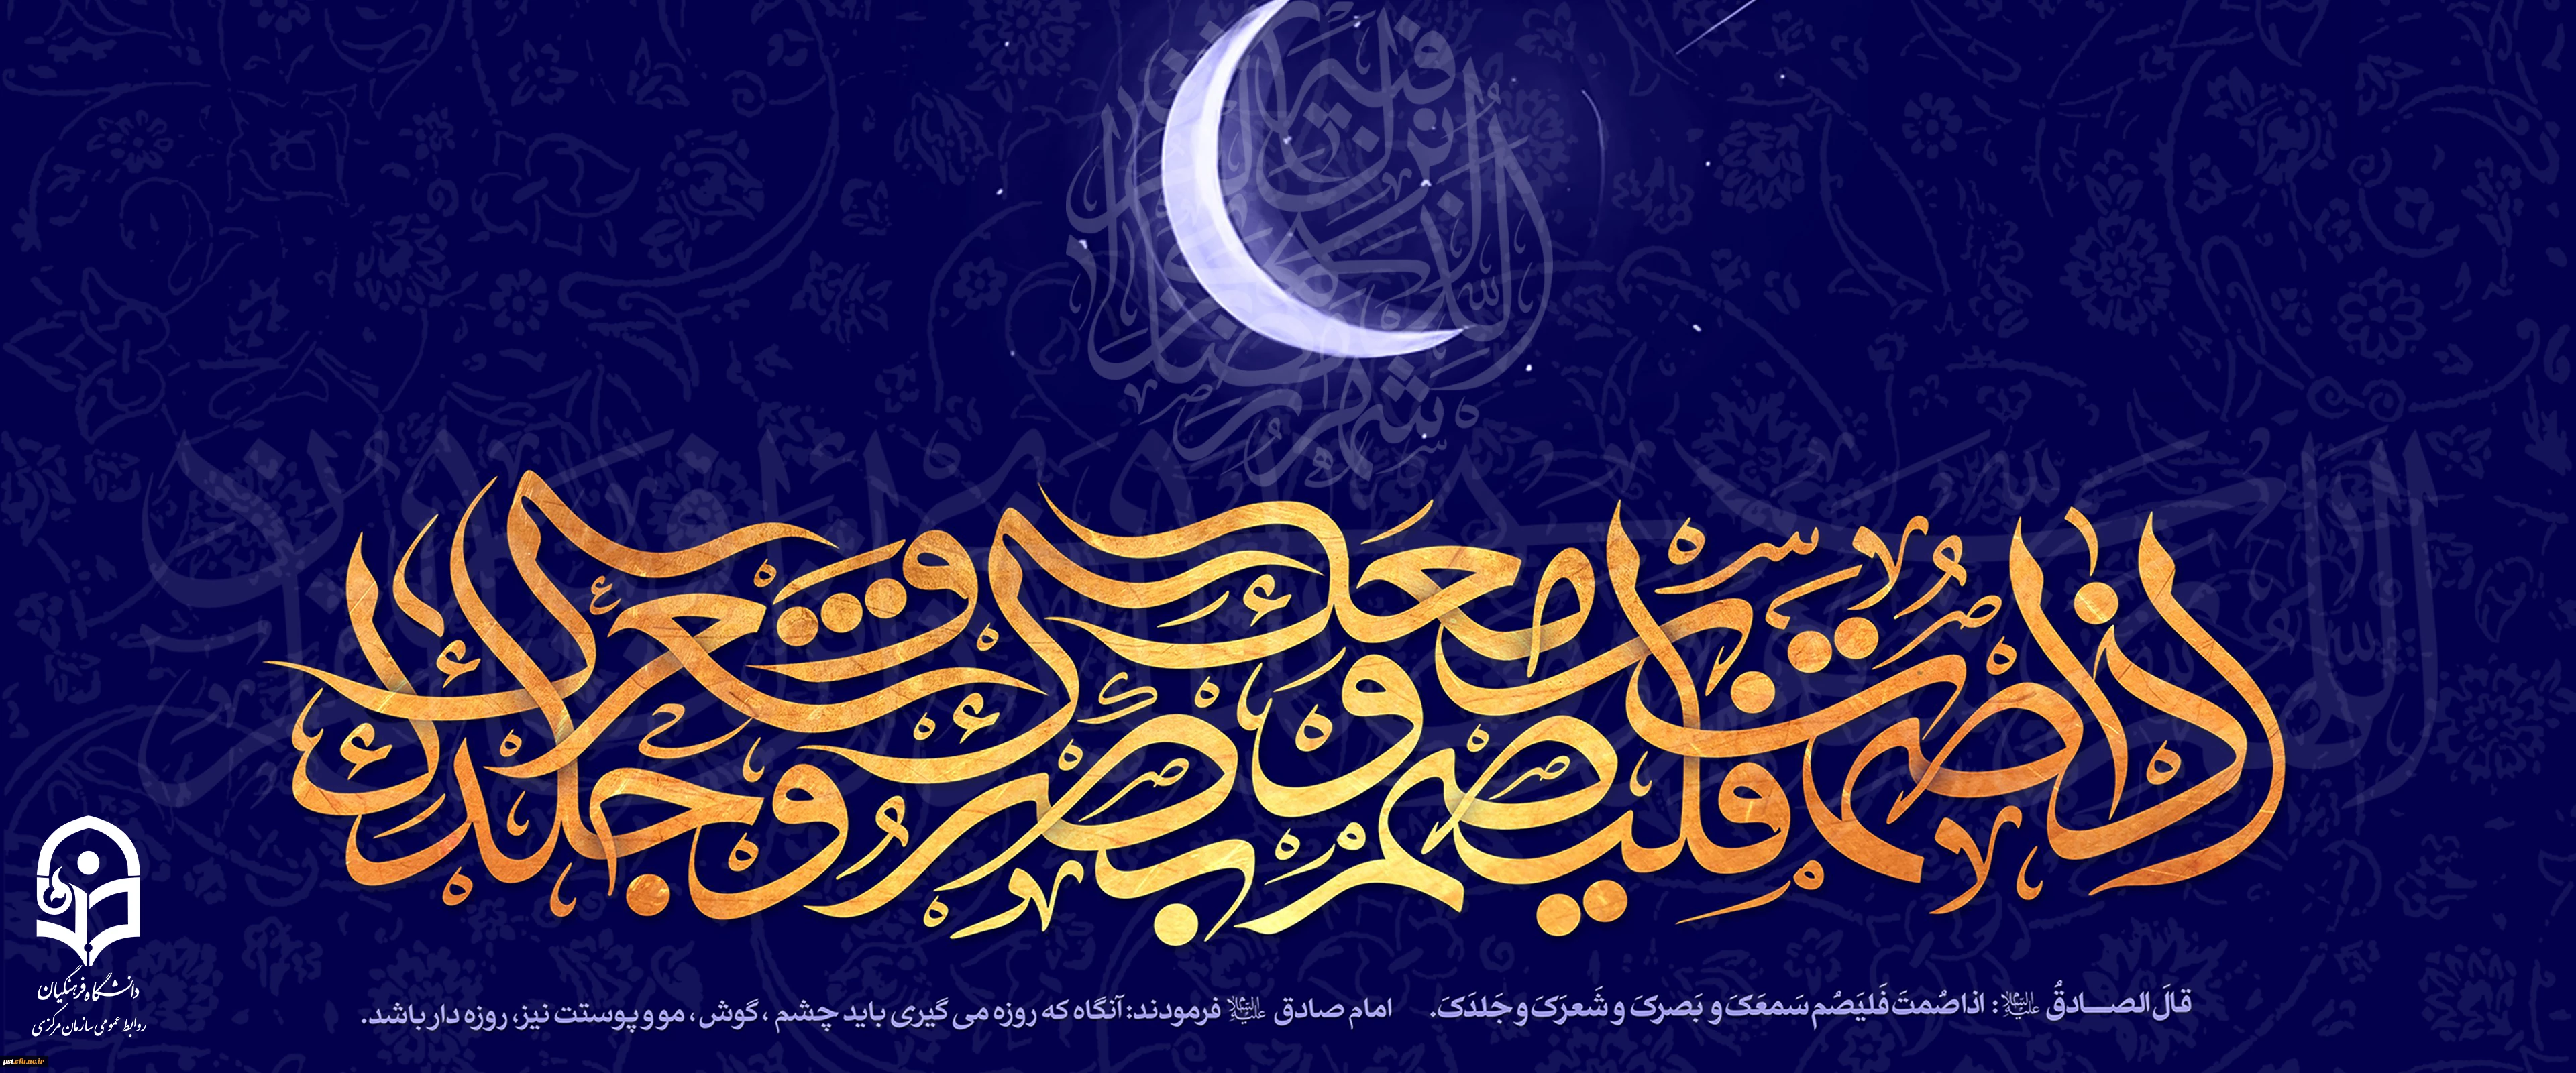 شهر رمضان الذی انزل فیه القرآن
اذا صمت فلیصم سمعک و بصرک و شعرک و جلدک
قالَ الصـــادقُ علیه‌السلام: اذا صُمتَ فَلیَصُم سَمعَکَ و بَصرکَ و شَعرَکَ و جَلدَکَ.
امام صادق علیه‌السلام فرمودند: آنگاه که روزه می گیری باید چشم ، گوش ، مو و پوستت نیز، روزه دار باشد.
دانشگاه فرهنگیان
روابط عمومی سازمان مرکزی
pst.cfu.ac.ir